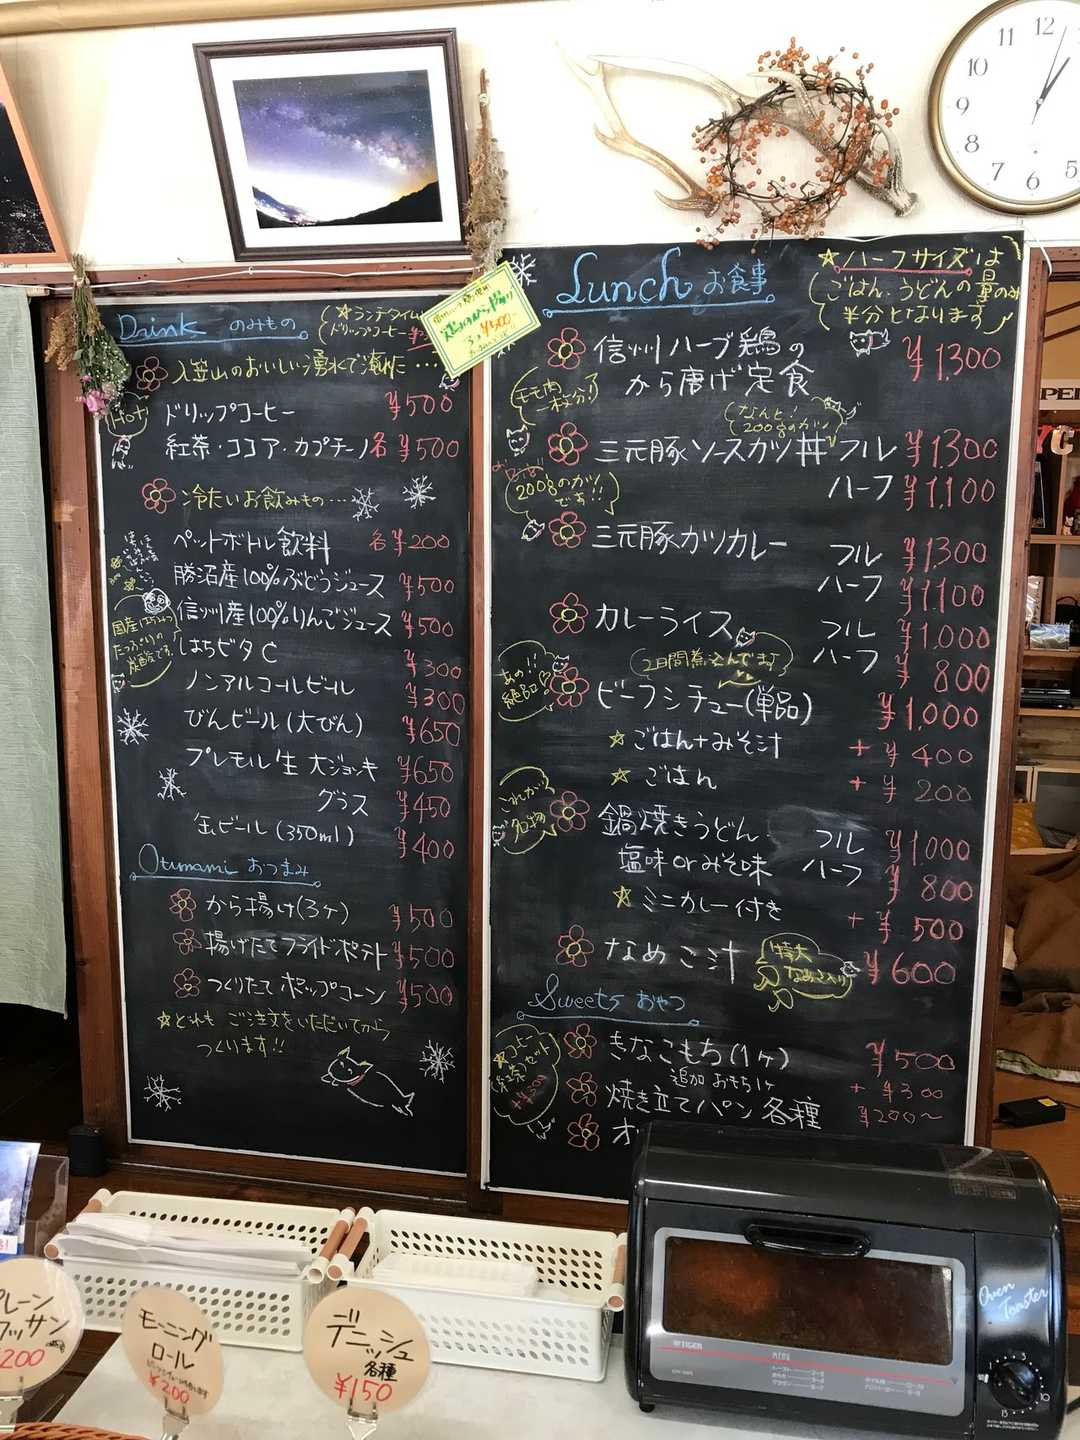 Drink のみもの
☆ランチタイム
ドリップコーヒー
入笠山のおいしい湧水で
Hot
ドリップコーヒー ¥500
紅茶・ココア・カプチーノ 各¥500
冷たいお飲みもの…
ペットボトル飲料 各¥200
勝沼産100%ぶどうジュース ¥500
信州産100%りんごジュース ¥500
はちビタC ¥300
国産はちみつ
たっぷりの
炭酸です。
ノンアルコールビール ¥300
びんビール(大びん) ¥650
プレモル生 大ジョッキ ¥650
グラス ¥450
缶ビール(350ml) ¥400
Otumami おつまみ
から揚げ(3ヶ) ¥500
揚げたてフライドポテト ¥500
つくりたてポップコーン ¥500
☆どれも ご注文をいただいてから
つくります!!
¥500
Lunch お食事
☆ハーフサイズは
ごはん、うどんの量のみ
半分となります
信州ハーブ鶏の ¥1,300
から唐げ定食
モモ肉
一枚分!
なんと!
200gのカツ
三元豚ソースカツ丼 フル ¥1,300
ハーフ ¥1,100
200gのカツ
です!!
三元豚カツカレー フル ¥1,300
ハーフ ¥1,100
カレーライス フル ¥1,000
ハーフ ¥800
2日間煮込んでます
あの!!
絶品
ビーフシチュー(単品) ¥1,000
☆ごはん+みそ汁 +¥400
☆ごはん +¥200
これが
名物
鍋焼きうどん フル ¥1,000
塩味orみそ味 ハーフ ¥800
☆ミニカレー付き +¥500
なめこ汁 ¥600
特大
なめこ入り
Sweets おやつ
☆コーヒー
(紅茶)セット
きなこもち(1ヶ) ¥500
追加 おもち1ヶ +¥300
焼き立てパン 各種 ¥200〜
オ
12
11
10
9
8
7
6
5
プレーン
ワッサン
200
モーニング
ロール
¥200
デニッシュ
各種
¥150
TIGER
MENU
Oven
Toaster